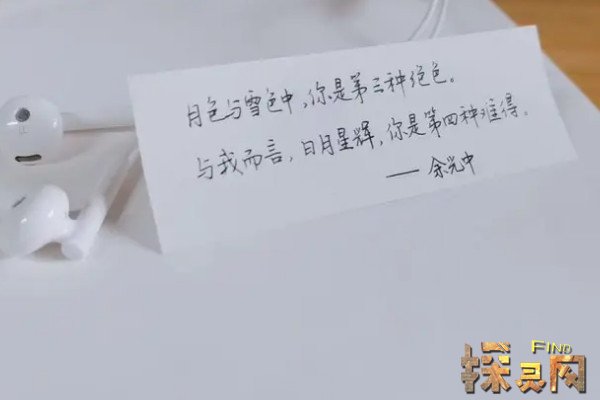 月色与雪色中，你是第三种绝色。
与我而言，日月星辉，你是第四种难得。
——余光中
FIND
探灵网